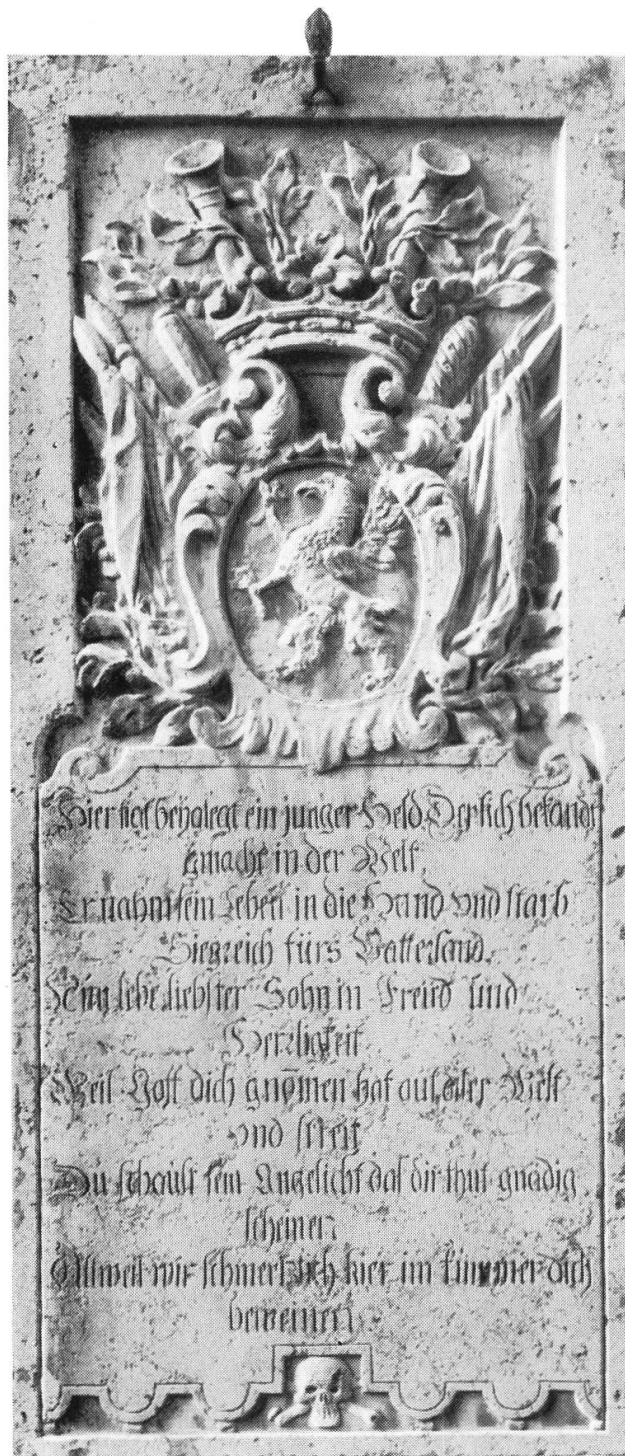 Hier ligt beygelegt ein junger Held, Der sich bekandt
gmacht in der Welt,
Er nahm sein Leben in die Hand vnd starb
Siegreich fürs Vatterland.
Nun lebe liebster Sohn in Freüd und
Herrligkeit
Weil Gott dich gnom̄en hat aus aller Welt
vnd streit
Du schaust sein Angesicht das dir thut gnädig
scheinen
Allweil wir schmertzlich hier im kummer dich
beweinen.